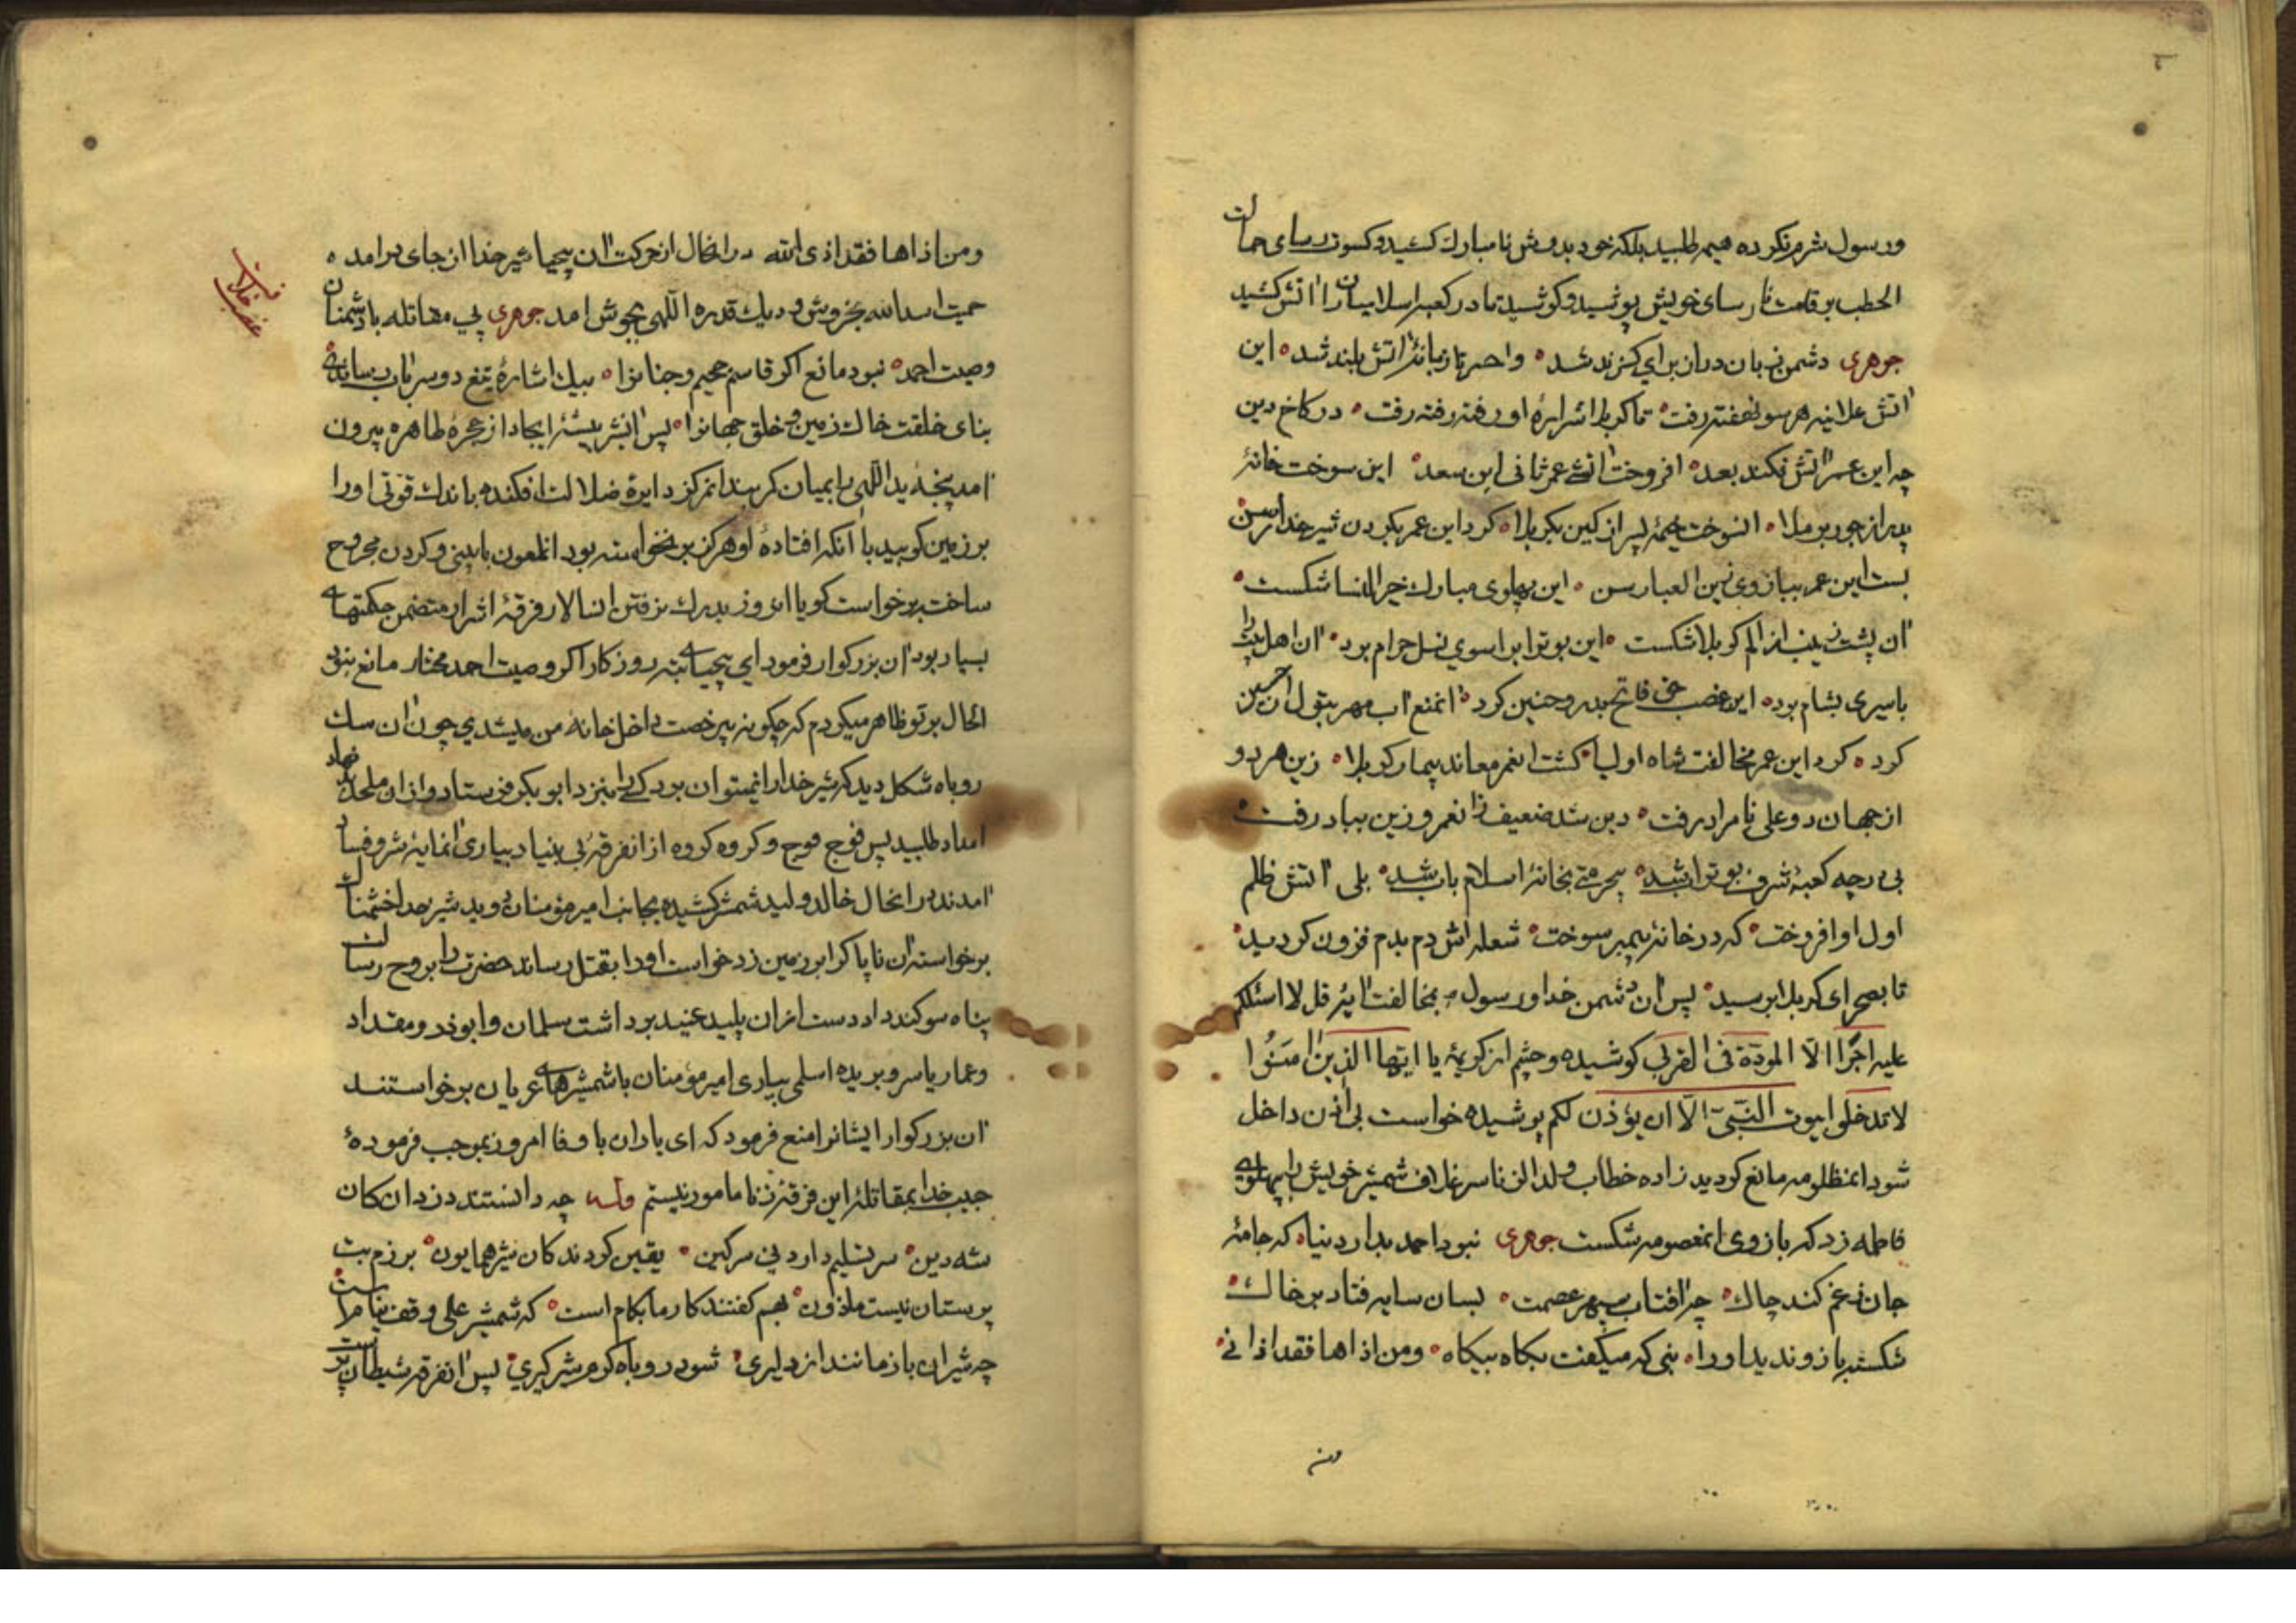 و رسول شرم نکرده هیمه طلبید بلکه خود بدوش نامبارک کشید و کسوت رسای حمالت
الحطب بر قامت نارسای خویش پوشید و کوشید تا در کعبه اسلامیان را آتش کشید
جوهری دشمن زبان دراز برای گزند شد واحسرتا زبانهٔ آتش بلند شد این
آتش علانیه هر سو نهفته رفت تا کربلا شرارهٔ او رفته رفته رفت در کاخ دین
چه این عمر آتش فکند بعد افروخت آتشی عمر ثانی ابن سعد این سوخت خانهٔ
پدر از جور برملا آن سوخت خیمهٔ پسر از کین بکربلا کرد این عمر بگردن شیر خدا رسن
بست این عمر ببازوی زین العبا رسن این پهلوی مبارک خیر النسا شکست
آن پشت زینب از الم کربلا شکست این بوتراب را سوی نسل حرام برد آن اهل بیت را
باسیری بشام برد این غصب حق فاتح بدر و حنین کرد آن منع آب مهر بتول از حسین
کرد کرد این عمر مخالفت شاه اولیا گشت آن عمر معاند بیمار کربلا زین هر دو
از جهان دو علی نامراد رفت دین شد ضعیف زان عمر و زین بباد رفت
بی درجه کعبهٔ شرف بوتراب شد بیحرمتی بخانهٔ اسلام باب شد بلی آتش ظلم
اول او افروخت که در خانهٔ پیمبر سوخت شعله اش دم بدم فزون گردید
تا بصحرای کربلا برسید پس آن دشمن خدا و رسول بمخالفت آیهٔ قل لا اسئلکم
علیه اجرًا الّا المودّة فی القربی کوشیده و چشم از کریمهٔ یا ایّها الذین امنوا
لا تدخلوا بیوت النّبیّ الّا ان یؤذن لکم پوشیده خواست بی اذن داخل
شود آن مظلومه مانع گردید زاده خطاب ولد الزنا سر غلاف شمشیر خویش را بپهلوی
فاطمه زد که بازوی آن معصومه شکست جوهری نبود احمد بدار دنیا که جامهٔ
جان ز غم کند چاک چه آفتاب سپهر عصمت بسان سایه فتاد بر خاک
شکسته بازو ندید او را نبی که میگفت بگاه بیگاه و من اذاها فقد اذانی
و من
و من اذاها فقد اذی الله در آنحال از حرکت آن بیحیا شیر خدا از جای برامده
حمیت اسد الله بخروش و دیک قدره اللهی بجوش امد جوهری پی مقاتله با دشمنان
وصیت احمد نبود مانع اگر قاسم جحیم و جنانرا بیک اشارهٔ تیغ دو سر بآب رساندی
بنای خلقت خاک زمین و خلق جهانرا پس آن شیر بیشهٔ ایجاد از حجرهٔ طاهره بیرون
آمد پنجه ید اللهی را بمیان کمربند آن مرکز دایرهٔ ضلالت افکنده باندک قوّتی او را
بر زمین کوبید با آنکه افتادهٔ او هرگز برنخواسته بود آن ملعون با بینی و گردن مجروح
ساخت برخواست گویا آن روز بدرک نرفتن آن سالار فرقهٔ اشرار متضمن حکمتهای
بسیار بود آن بزرگوار فرمود ای بیحیای تبه روزگار اگر وصیت احمد مختار مانع نبود
الحال بر تو ظاهر میکردم که چگونه بیرخصت داخل خانهٔ من میشدی چون آن سگ
روباه شکل دید که شیر خدا را نمیتوان برد کسی را بنزد ابو بکر فرستاد و از آن ملحد بد نهاد
امداد طلبید پس فوج فوج و گروه گروه از آن فرقهٔ بی بنیاد بیاری آن مایهٔ شر و فساد
آمدند در آنحال خالد ولید شمشیر کشیده بجانب امیر مؤمنان دوید شیر خدا خشمناک
برخواسته آن ناپاک را بر زمین زد خواست او را بقتل رساند حضرت را بروح رسالت
پناه سوگند داد دست از آن پلید عنید برداشت سلمان و ابوذر و مقداد
و عمار یاسر و بریده اسلمی بیاری امیر مؤمنان با شمشیرهای عریان برخواستند
آن بزرگوار ایشانرا منع فرمود که ای یاران با وفا امروز بموجب فرمودهٔ
حبیب خدا بمقاتلهٔ این فرقهٔ زنا مامور نیستم وله چه دانستند دزدان کان
شه دین سر تسلیم دارد نی سر کین یقین کردند کان شیر همایون برزم بت
پرستان نیست ماذون بهم گفتند کار ما بکام است که شمشیر علی وقف نیام است
چه شیران باز مانند از دلیری شود روباه گرم شیر گیری پس آن فرقه شیطان پرست
غصب خلافت